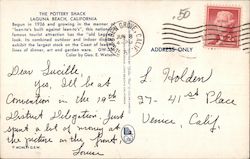 THE POTTERY SHACK
LAGUNA BEACH, CALIFORNIA
Begun in 1936 and growing in the manner of
"leanto's built against leanto's", this nation
famous tourist attraction has the "old Laguna"
look. Its combined outdoor and indoor displays
exhibit the largest stock on the Coast of leading
lines of dinner, art and garden ware.
Color by Geo. E. Watson
.50
GROVE
CALIF
ADDRESS ONLY
Dear Lucille,
Yes, I'll be at
Convention in the 19th
District Delegation. Just
spent a lot of money at
the picture on the front.
Louise
L. Holden
27-41st Place
Venice Calif.